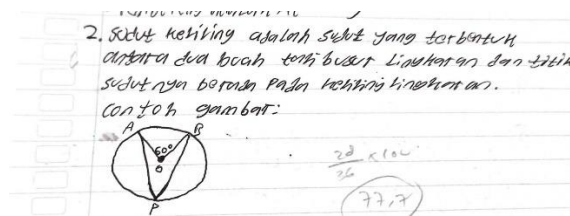 2. sudut keliling adalah sudut yang terbentuk
antara dua buah tali busur Lingkaran dan titik
sudutnya berada Pada keliling lingkaran.
contoh gambar:
A B
60°
O
P
28/36 x 100
77,7